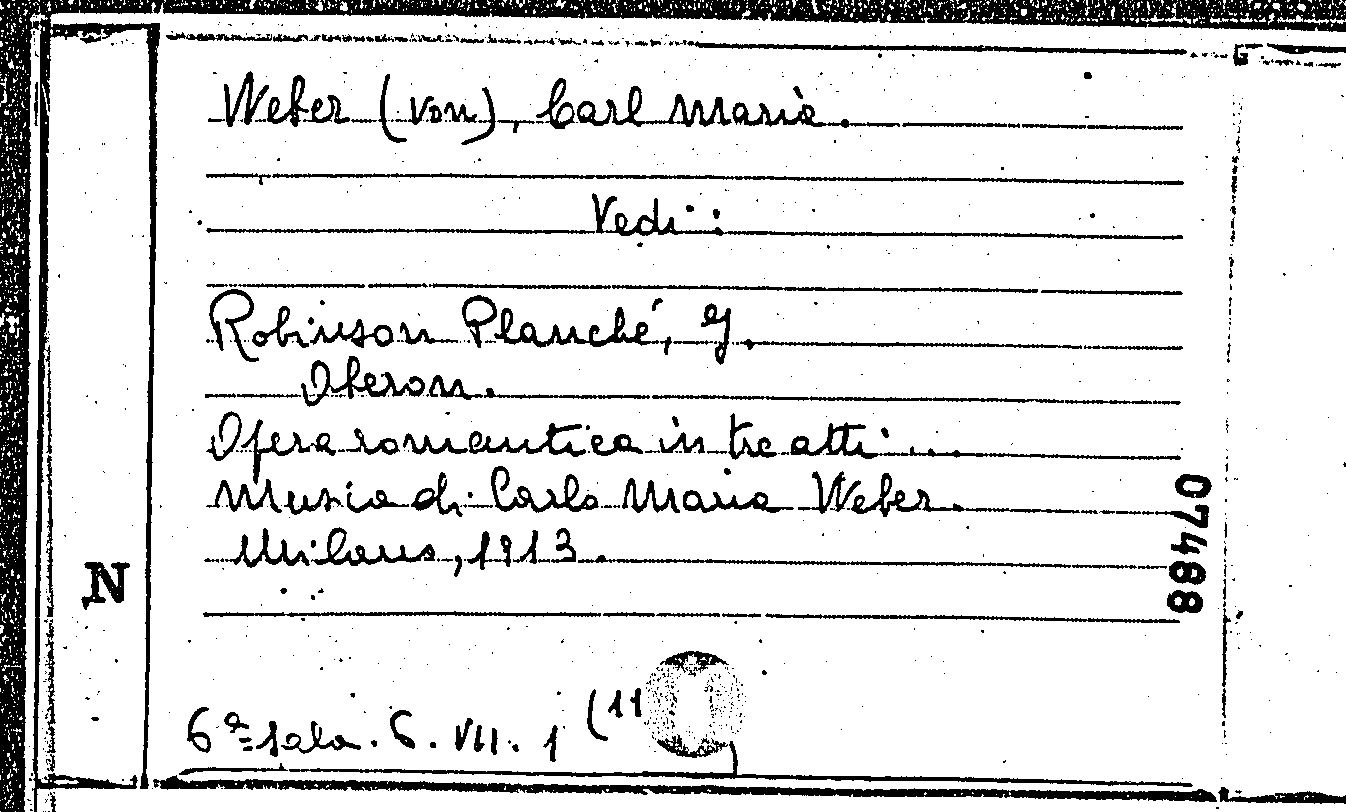 Weber (von), Carl Maria.
Vedi:
Robinson Planché, G.
Oberon.
Opera romantica in tre atti ...
Musica di Carlo Maria Weber.
Milano, 1913.
07488
N
6ª sala. 6. VII. 1 (11